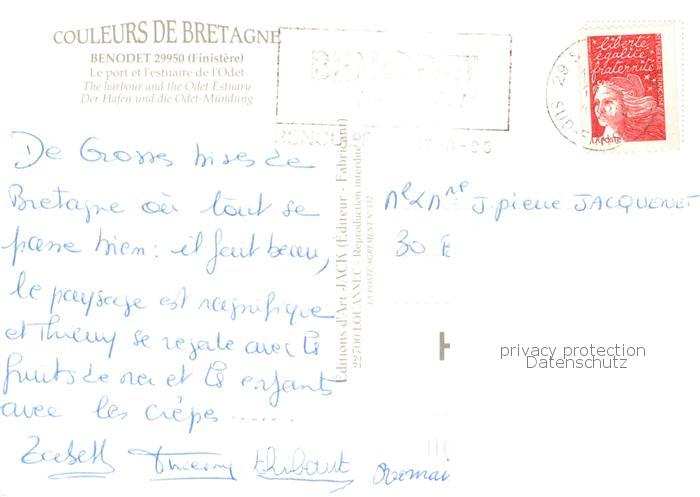 COULEURS DE BRETAGNE
BENODET 29950 (Finistère)
Le port et l'estuaire de l'Odet
The harbour and the Odet Estuary
Der Hafen und die Odet-Mündung
De Grosses bises de
Bretagne où tout se
passe bien : il fait beau,
le paysage est magnifique
et Thierry se regale avec les
fruits de mer et les enfants
avec les crêpes ......
Thierry Thibaut Romai
Editions d'Art JACK (Éditeur - Fabricant)
22700 LOUANNEC - Reproduction interdite ©
LA POSTE AGRÉMENT N° 112
BENODET
29
liberté
égalité
fraternité
RÉPUBLIQUE FRANÇAISE
LA POSTE
J. pierre JACQUENET
30
privacy protection
Datenschutz